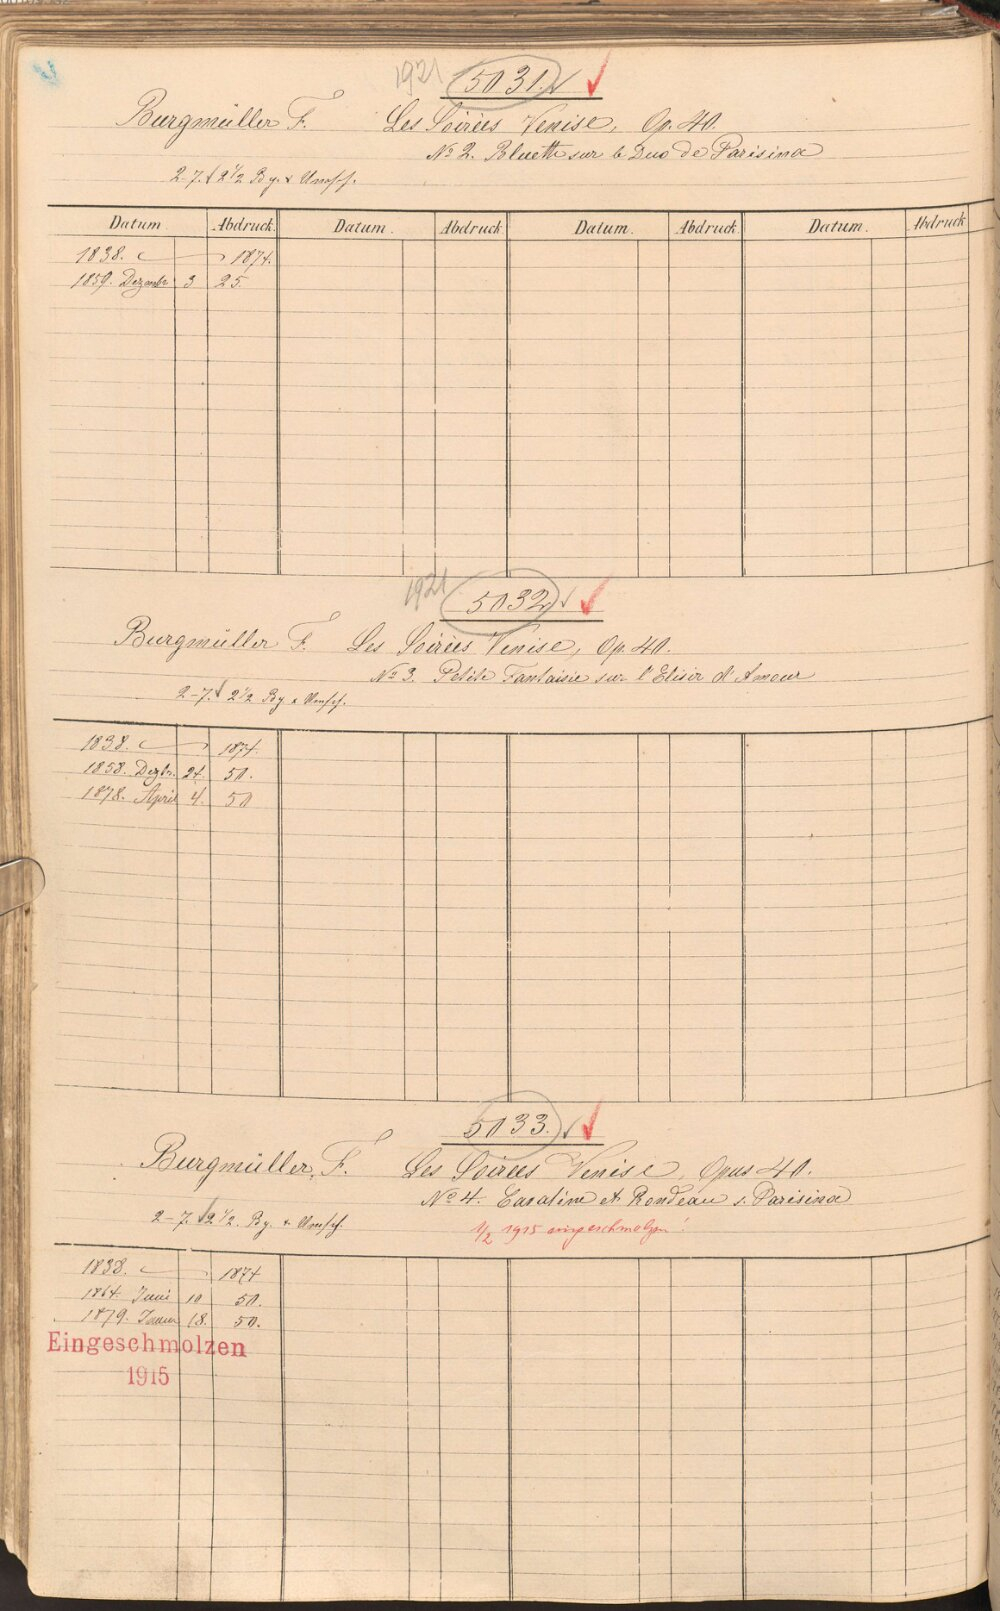 1921 5031.
Burgmüller F. Les Soirées Venise, Op. 40.
No 2. Bluette sur le Duo de Parisina
2-7. 2 1/2 Bg. &
Datum Abdruck. Datum. Abdruck Datum. Abdruck. Datum. Abdruck
1838. 1874.
1859. Dezember 3 25.
1921 5032
Burgmüller F. Les Soirées Venise, Op. 40.
No 3. Petite Fantaisie sur l'Elisir d'Amour
2-7. 2 1/2 Bg &
1838. 1874.
1858. Dezbr. 24 50.
1878. April 4. 50
5033.
Burgmüller, F. Les Soirees Venise, Opus 40.
No 4. Cavatine et Rondeau s. Parisina
2-7. 2 1/2. Bg. &
1/2 1915 eingeschmolzen!
1838. 1874
1864. Juni 10 50.
1879. Januar 18. 50.
Eingeschmolzen
1915